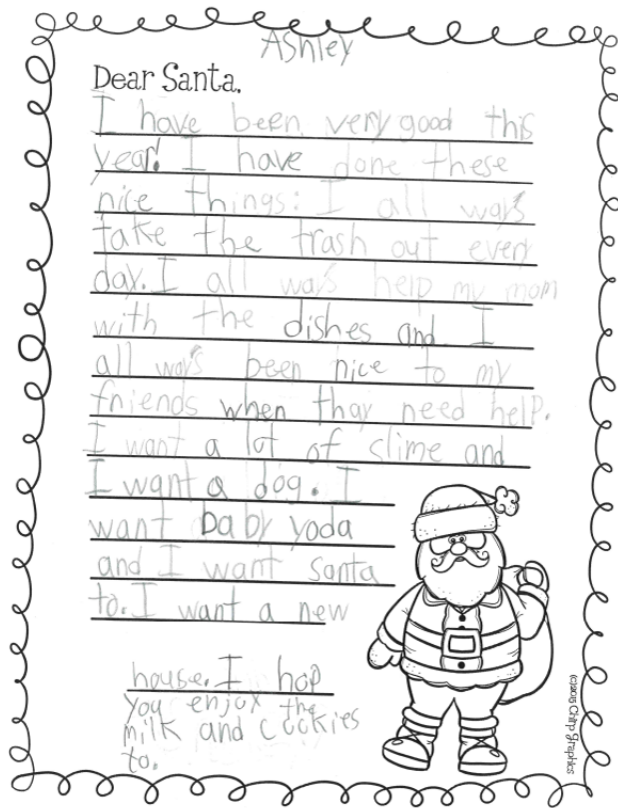 Ashley
Dear Santa,
I have been very good this
year! I have done these
nice things: I all ways
take the trash out every
day. I all ways help my mom
with the dishes and I
all ways been nice to my
friends when thay need help.
I want a lot of slime and
I want a dog. I
want baby yoda
and I want santa
to. I want a new
house. I hop
you enjox the
milk and cookies
to.
(c)2015 Chirp Graphics